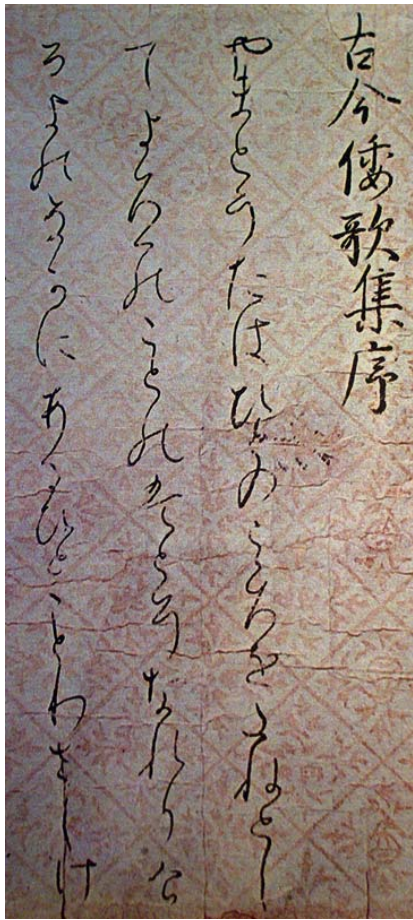 古今倭歌集序
やまとうたはひとのこゝろをたねとし
てよろつのことのはとそなれりけ
るよのなかにあるひとことわさしけ